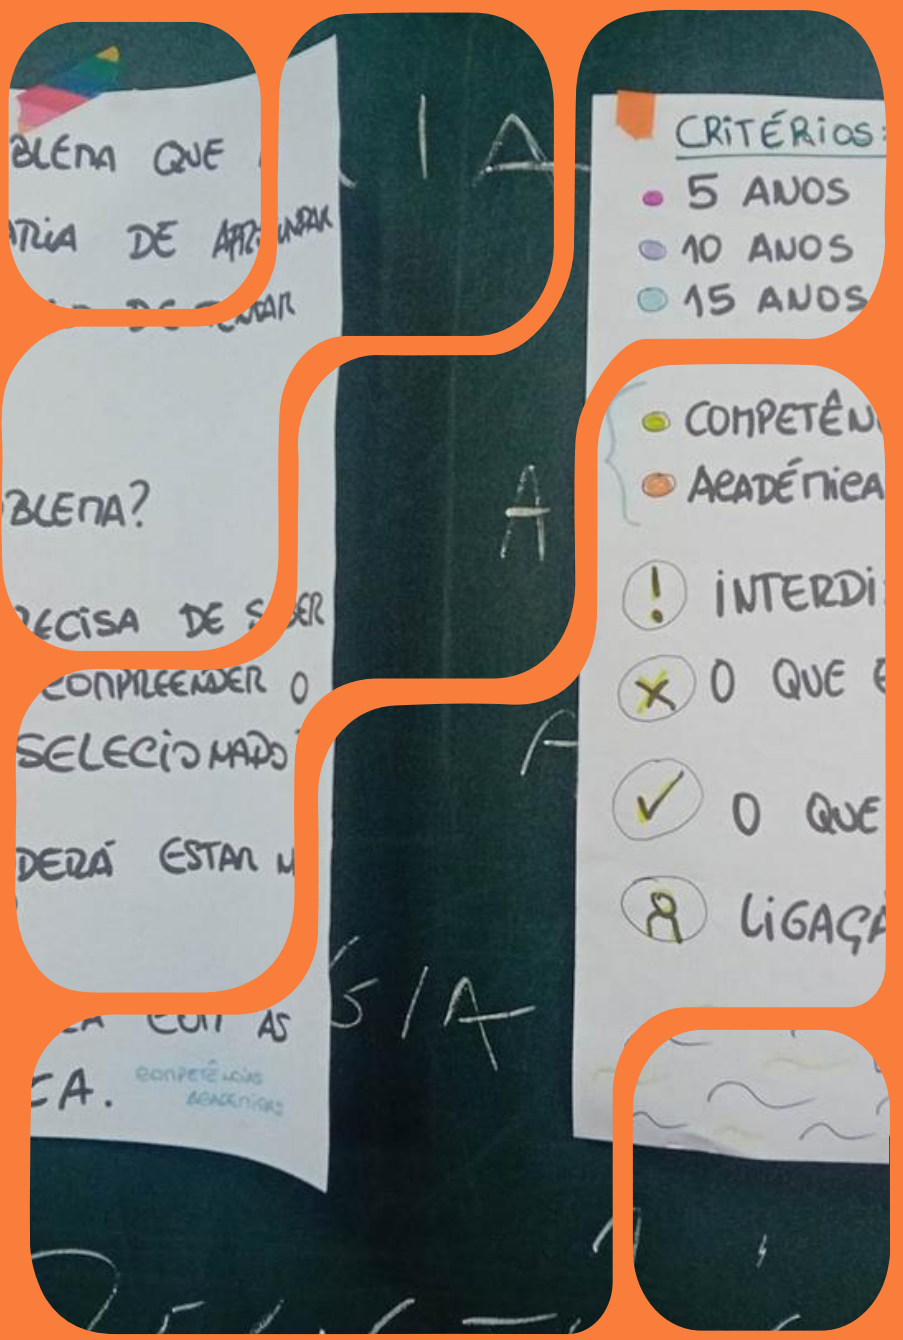 BLEMA QUE
DE
DE TENTAR
BLEMA?
RECISA DE SABER
COMPREENDER O
SELECIONADO
DERÁ ESTAR
COM AS
CA.
COMPETÊNCIAS
ACADÉMICAS
IA
A
A
S/A
CRITÉRIOS:
5 ANOS
10 ANOS
15 ANOS
COMPETÊN
ACADÉMICA
! INTERDI
O QUE E
O QUE
LIGAÇA